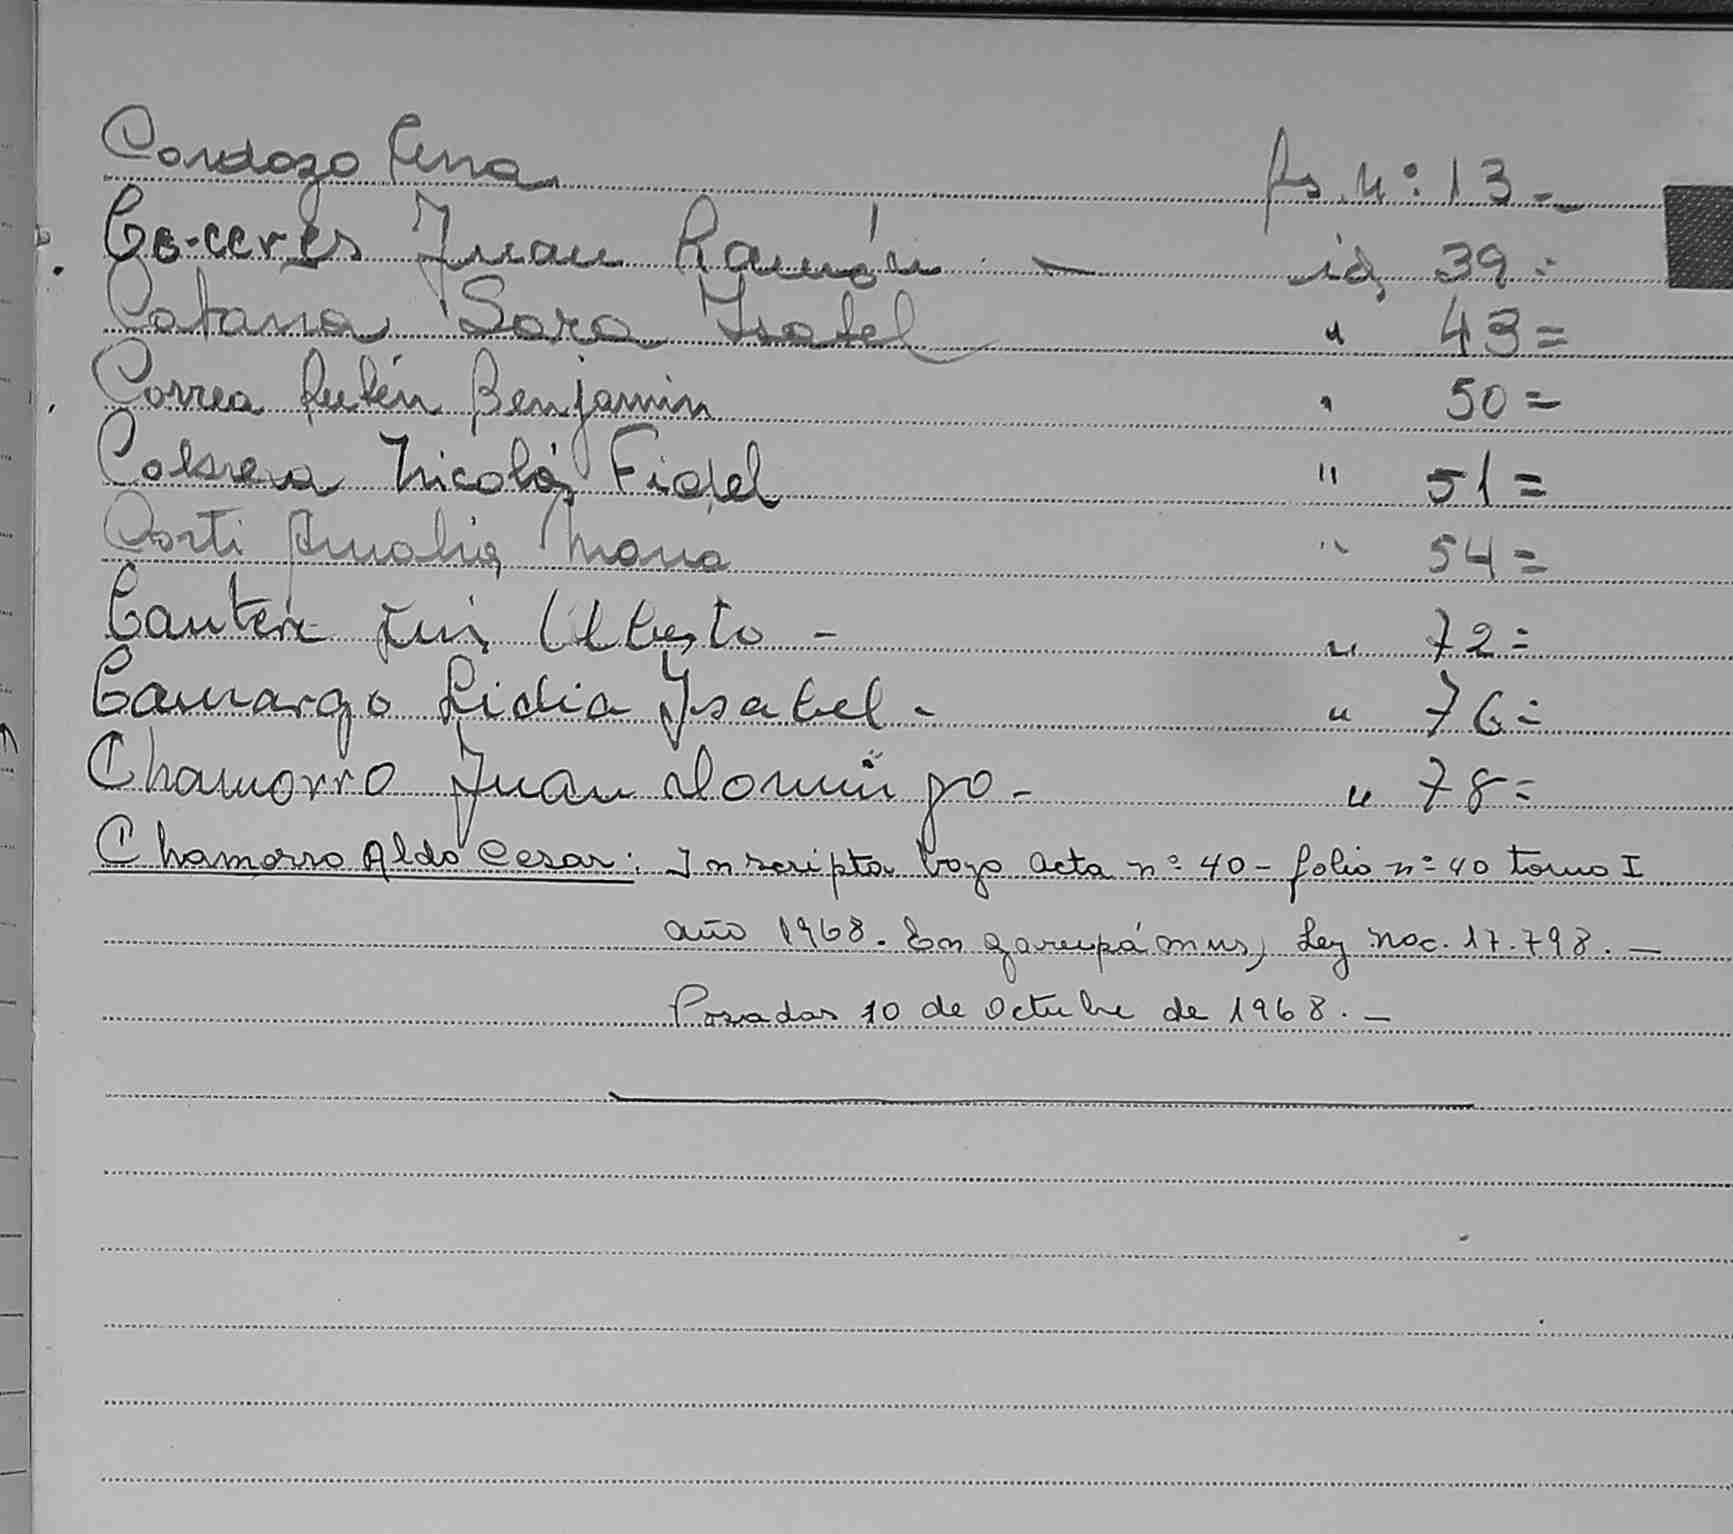 Cardozo fs. Nº: 13 -
Caceres Juan Ramón - id, 39 =
Sara Isabel " 43 =
Correa Rubén Benjamin " 50 =
Cabrera Nicolás Fidel " 51 =
Corti Amalia Maria " 54 =
Luis Alberto - " 72 =
Camargo Lidia Ysabel - " 76 =
Chamorro Juan Domingo - " 78 =
Chamorro Aldo Cesar: Inscripta bajo acta nº 40 - folio nº 40 tomo I
año 1968. En garupá mns, Ley nac. 17.798. -
Posadas 10 de Octubre de 1968. -